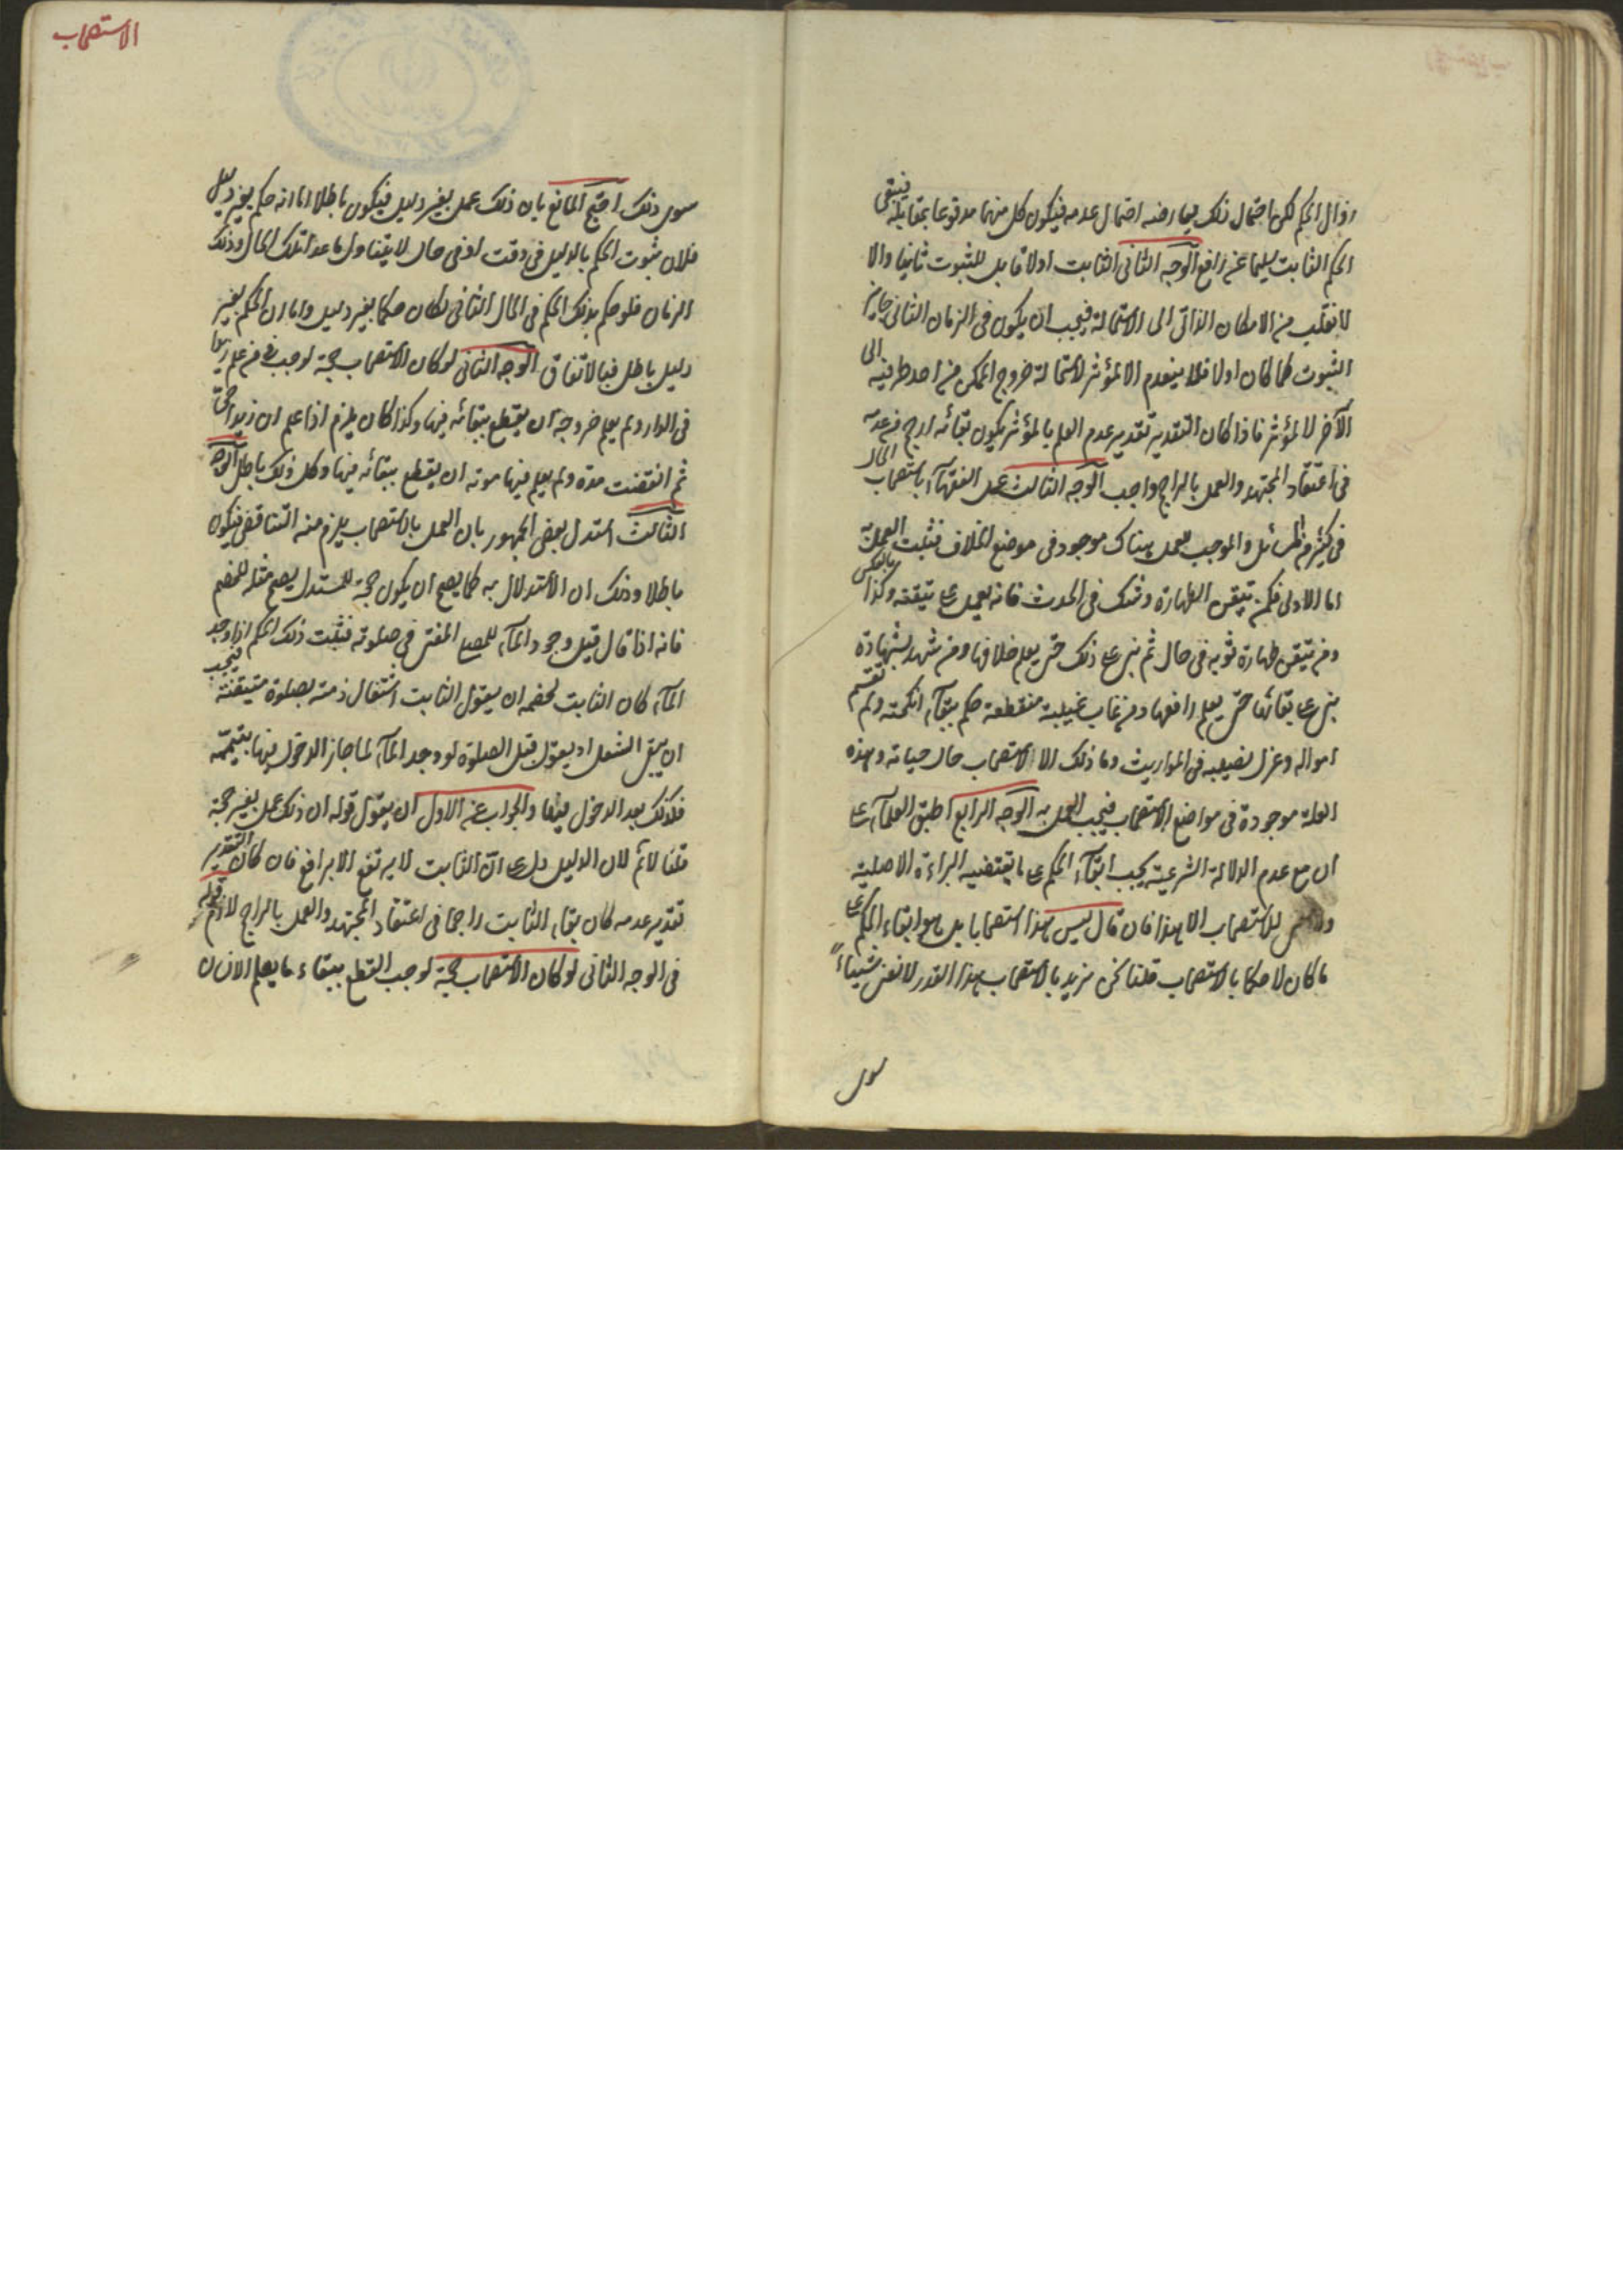 زوال الحكم لكن احتمال ذلك يعارضه احتمال عدمه فيكون كل منهما مدفوعا بمقابله فيبقى
الحكم الثابت سليما عن رافع الوجه الثانى الثابت اولا قابل للثبوت ثانيا والا
لانقلب من الامكان الذاتى الى الاستحالة فيجب ان يكون فى الزمان الثانى جايز
الثبوت كما كان اولا فلا ينعدم الا لمؤثر لاستحالة خروج الممكن من احد طرفيه الى
الآخر لا لمؤثر فاذا كان التقدير تقدير عدم العلم بالمؤثر يكون بقائه ارجح من عدمه
فى اعتقاد المجتهد والعمل بالراجح واجب الوجه الثالث عمل الفقهآء باستصحاب الحال
فى كثير من المسائل والموجب للعمل هناك موجود فى موضع الخلاف فثبت العمل به
اما الاولى فكمن تيقن الطهارة وشك فى الحدث فانه يعمل على تيقنه وكذا بالعكس
ومن تيقن طهارة ثوبه فى حال ثم بنى على ذلك حتى يعلم خلافها ومن شهد بشهادة
بنى على بقائها حتى يعلم رافعها ومن غاب غيبة منقطعة حكم ببقآء انكحته ولم تقسم
امواله وعزل نصيبه فى المواريث وما ذلك الا لاستصحاب حال حياته وهذه
العلة موجودة فى مواضع الاستصحاب فيجب العمل به الوجه الرابع اطبق العلمآء على
ان مع عدم الدلالة الشرعية يجب ابقآء الحكم على ما يقتضيه البراءة الاصلية
ولا معنى للاستصحاب الا هذا فان قال ليس هذا استصحابا بل هو ابقاء الحكم على
ما كان لا حكما بالاستصحاب قلنا نحن نريد بالاستصحاب هذا القدر لا نعنى شيئاً
سوى
الاستصحاب
سوى ذلك احتج المانع بان ذلك عمل بغير دليل فيكون باطلا اما انه حكم بغير دليل
فلان ثبوت الحكم بالدليل فى وقت او فى حال لا يتناول ما عدا تلك الحال وذلك
الزمان فلو حكم بذلك الحكم فى الحال الثانى لكان حكما بغير دليل واما ان الحكم بغير
دليل باطل فبالاتفاق الوجه الثانى لو كان الاستصحاب حجة لوجب فى من علم زيدا
فى الدار ولم يعلم خروجه ان يقطع ببقائه فيها وكذا كان يلزم اذا علم ان زيدا حى
ثم انقضت مدة ولم يعلم فيها موته ان يقطع ببقائه فيها وكل ذلك باطل الوجه
الثالث استدل بعض الجمهور بان العمل بالاستصحاب يلزم منه التناقض فيكون
باطلا وذلك ان الاستدلال به كما يصح ان يكون حجة للمستدل يصح مثله للخصم
فانه اذا قال قبل وجود المآء للمصلى المفتى فى صلوته فثبت ذلك الحكم اذا وجد
المآء كان الثابت لخصمه ان يقول الثابت اشتغال ذمته بصلوة متيقنة فيجب
ان يبقى الشغل او يقول قبل الصلوة لو وجد المآء لما جاز الدخول فيها بتيممه
فكذلك بعد الدخول فيها والجواب عن الاول ان يقول قوله ان ذلك عمل بغير حجة
قلنا لا نم لان الدليل دل على ان الثابت لا يرتفع الا برافع فان كان التقدير
تقدير عدمه كان بقاء الثابت راجحا فى اعتقاد المجتهد والعمل بالراجح لازم قوله
فى الوجه الثانى لو كان الاستصحاب حجة لوجب القطع ببقاء ما يعلم الانسان